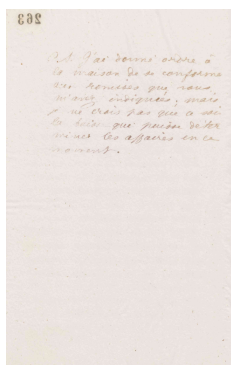 263
J'ai donné ordre à
la maison de se conformer
aux remises que vous
m'avez indiquées; mais
je ne crois pas que ce soit
le tems que puisse déter
miner les affaires en ce
moment.